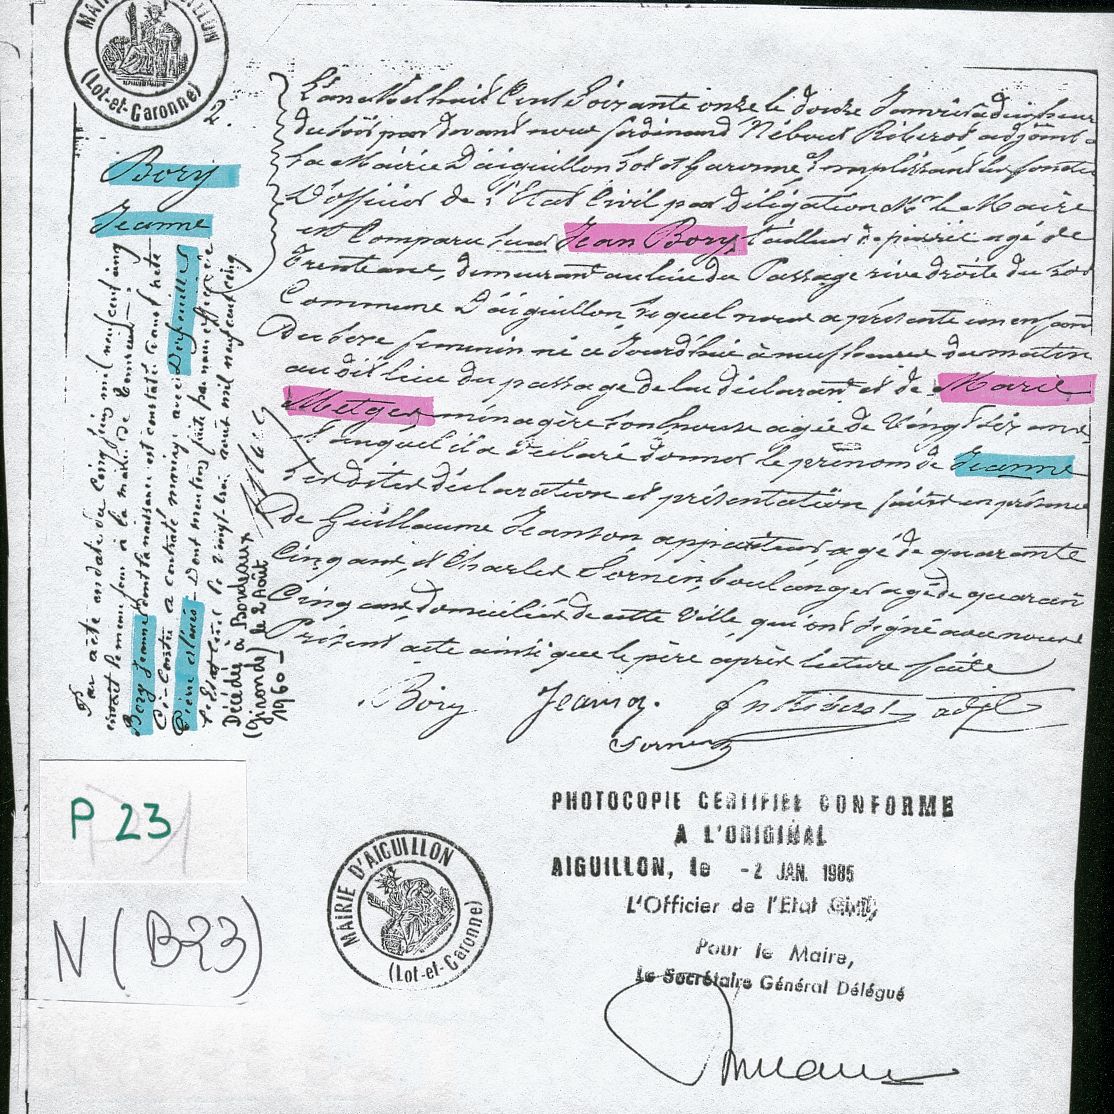 MAIRIE D'AIGUILLON
(Lot-et-Garonne)
2.
Bory
Jeanne
L'an Mil huit Cent Soixante onze le douze Janvier à dix heures
du soir par devant nous ferdinand Nébout Riberot adjoint à
La Mairie D'aiguillon Lot et Garonne remplissant les fonctions
D'officier de l'Etat Civil par délégation Mr le Maire
est Comparu Jean Bory tailleur de pierre agé de
Trente ans, demeurant au lieu du Passage rive droite du Lot
Commune D'aiguillon Lequel nous a présenté un enfant
du Sexe feminin né ce Jourdhui à neuf heures du matin
au dit lieu du passage de lui déclarant et de Marie
Metges ménagère Son Epouse agée de Vingt Six ans
et auquel il a declaré donner le prénom de Jeanne
Les dites déclaration et présentation faites en présence
De Guillaume Jeanson appariteur, agé de quarante
Cinq ans, et Charles Sornin boulanger agé de quarante
Cinq ans domiciliés de cette Ville qui ont signé avec nous le
Présent acte ainsi que le père après lecture faite
Bory Jeanson. fn Riberot adjt
Sornin
Par acte en date du Cinq Juin mil neuf cent cinq
inscrit le meme jour à la mairie de
Bory Jeanne dont la naissance est constatée dans l'acte
Ci-Contre a contracté mariage avec
Pierre Alexis - Dont mention faite par nous officier de
l'état civil le vingt huit août mil neuf cent cinq
Décédée à Bordeaux
(Gironde) le 2 Août
1960 -
P 23
N (B23)
MAIRIE D'AIGUILLON
(Lot-et-Garonne)
PHOTOCOPIE CERTIFIEE CONFORME
A L'ORIGINAL
AIGUILLON, le -2 JAN. 1985
L'Officier de l'Etat Civil,
Pour le Maire,
Le Secrétaire Général Délégué